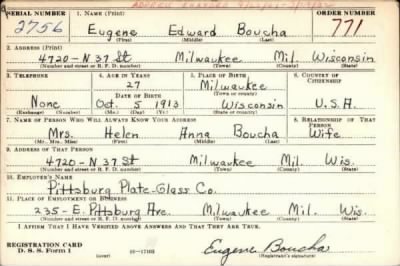 SERIAL NUMBER 1. NAME (Print) ORDER NUMBER
2756 Eugene Edward Boucha 771
(First) (Middle) (Last)
2. ADDRESS (Print)
4720-N 37 St Milwaukee Mil Wisconsin
(Number and street or R. F. D. number) (Town) (County) (State)
3. TELEPHONE 4. AGE IN YEARS 5. PLACE OF BIRTH 6. COUNTRY OF CITIZENSHIP
27 Milwaukee
DATE OF BIRTH (Town or county)
None Oct. 5 1913 Wisconsin U.S.A.
(Exchange) (Number) (Mo.) (Day) (Yr.) (State or country)
7. NAME OF PERSON WHO WILL ALWAYS KNOW YOUR ADDRESS 8. RELATIONSHIP OF THAT PERSON
Mrs. Helen Anna Boucha Wife
(Mr., Mrs., Miss) (First) (Middle) (Last)
9. ADDRESS OF THAT PERSON
4720-N 37 St Milwaukee Mil. Wis.
(Number and street or R. F. D. number) (Town) (County) (State)
10. EMPLOYER'S NAME
Pittsburg Plate-Glass Co.
11. PLACE OF EMPLOYMENT OR BUSINESS
235-E. Pittsburg Ave. Milwaukee Mil. Wis.
(Number and street or R. F. D. number) (Town) (County) (State)
I AFFIRM THAT I HAVE VERIFIED ABOVE ANSWERS AND THAT THEY ARE TRUE.
REGISTRATION CARD
D. S. S. Form 1 (over) Eugene Boucha
(Registrant's signature)